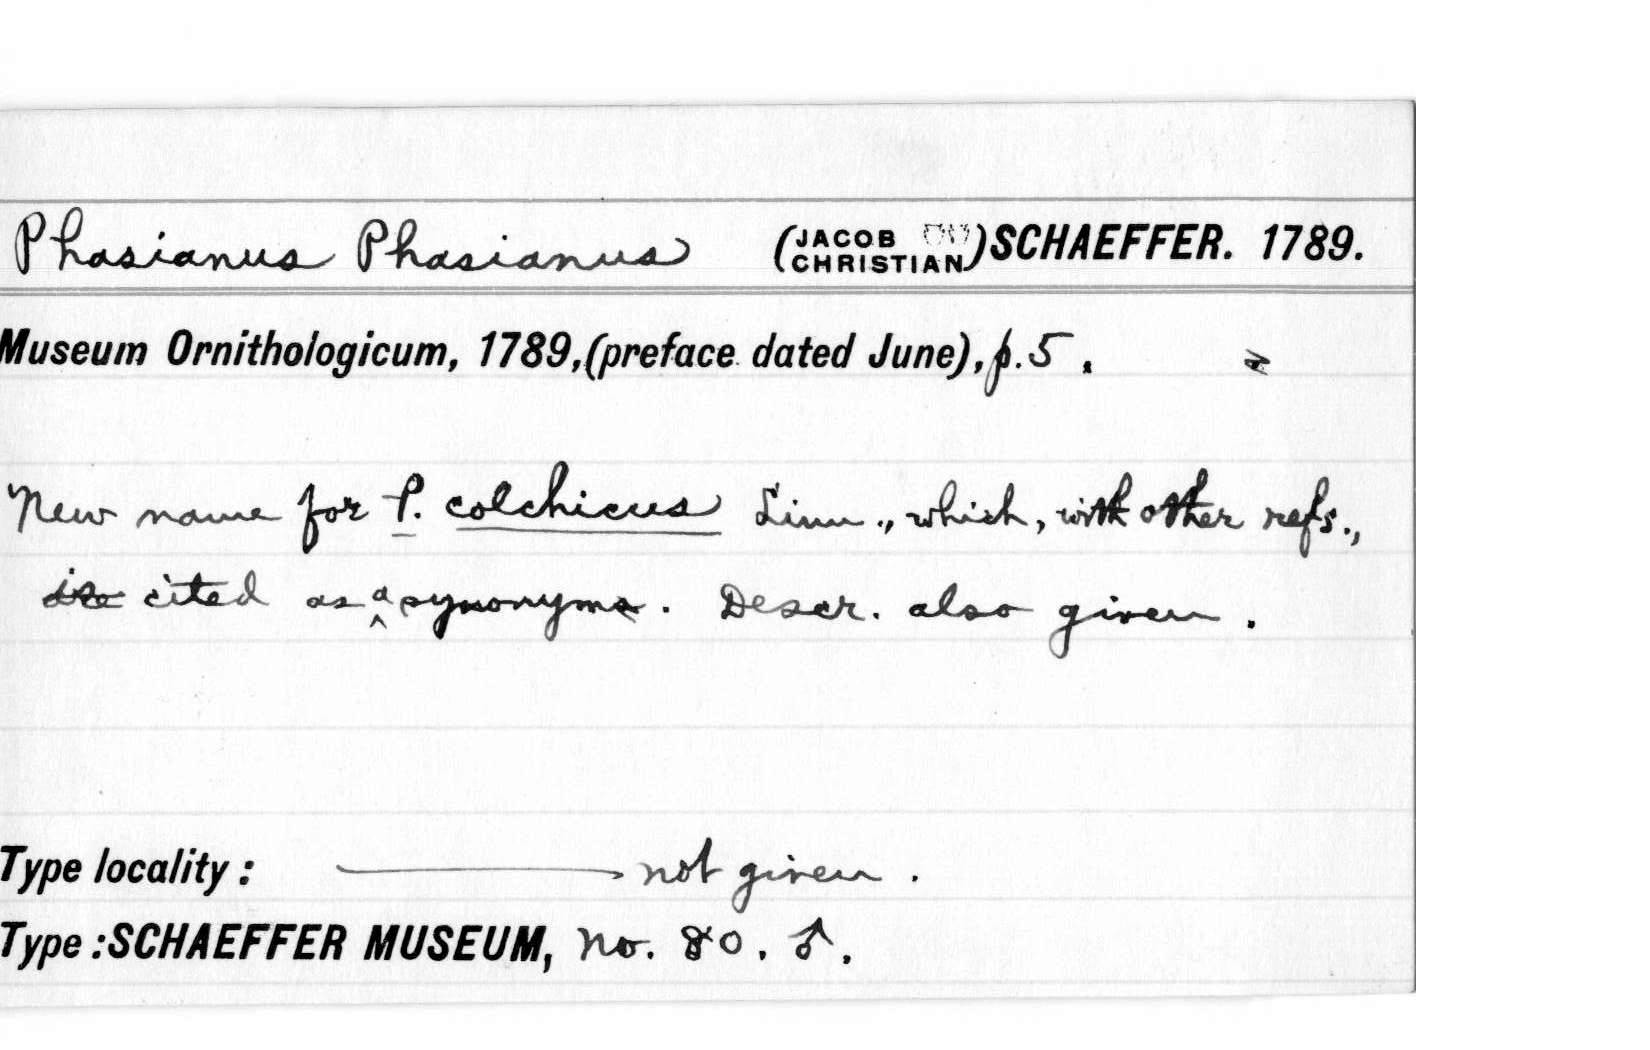 Phasianus Phasianus (JACOB CHRISTIAN) SCHAEFFER. 1789.
Museum Ornithologicum, 1789, (preface dated June), p. 5.
New name for P. colchicus Linn., which, with other refs.,
is cited as a synonym. Descr. also given.
Type locality: not given.
Type: SCHAEFFER MUSEUM, no. 80. ♂.